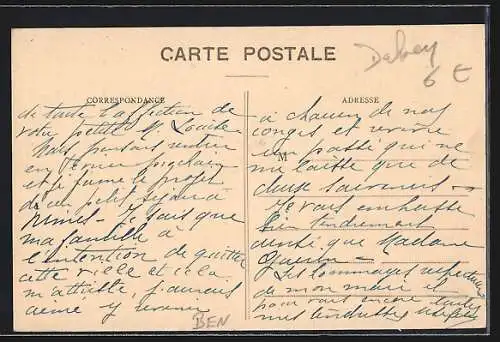 CARTE POSTALE
Dahey
6 €
CORRESPONDANCE
de toute l'affection de
votre petite M. Louise
Nous pensons rentrer
en février prochain
et je forme le projet
de un petit séjour à
Nîmes - Je sais que
ma famille a
l'intention de quitter
cette ville et cela
m'attriste, j'aurais
aimé y revenir
BEN
ADRESSE
M
à chacun de nos
congés et revivre
un passé qui ne
me laisse que de
doux souvenirs -
Je vais embrasse
bien tendrement
ainsi que Madame
Les hommages respectueux
de mon mari et
pour vous encore toutes
mes tendresses